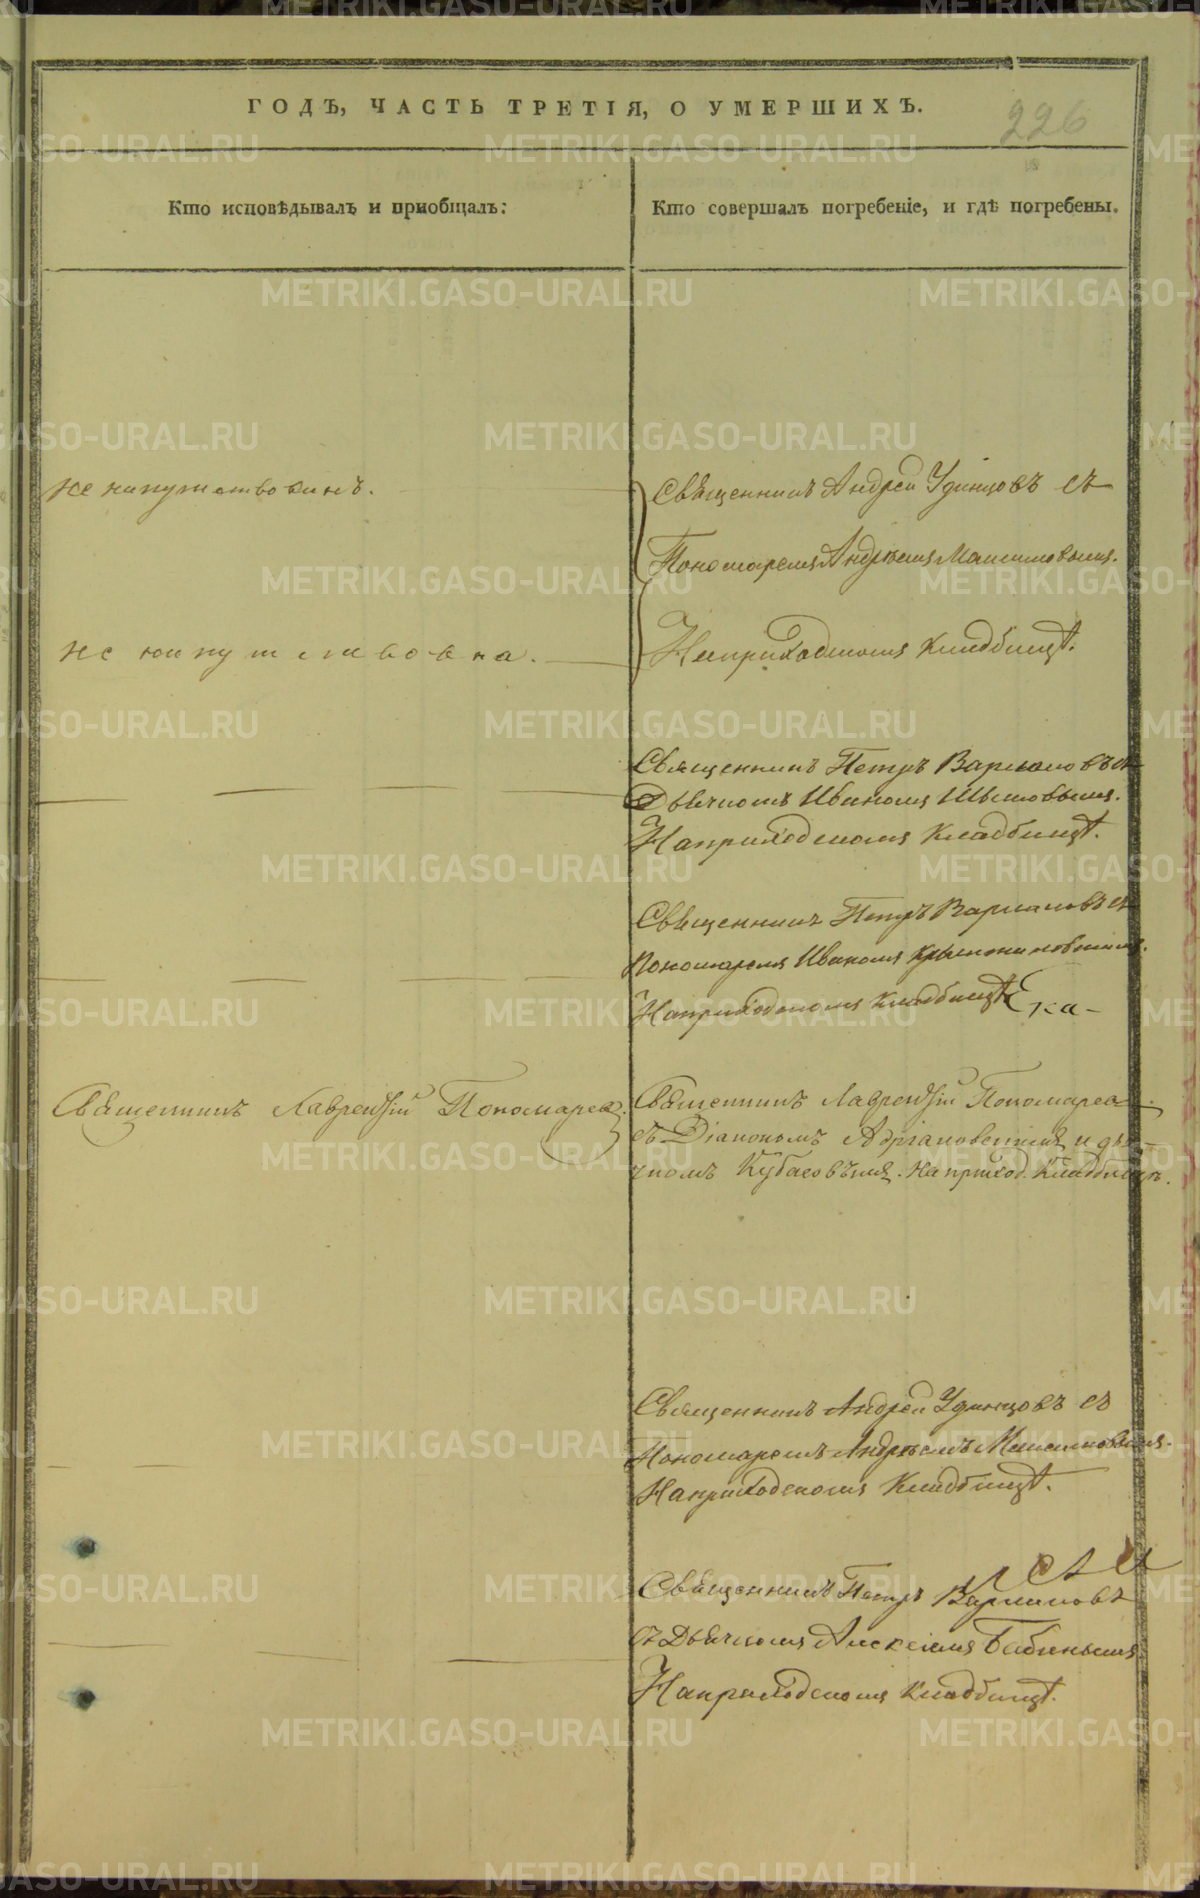 ГОДЪ, ЧАСТЬ ТРЕТІЯ, О УМЕРШИХЪ.
226
Кто исповѣдывалъ и пріобщалъ:
Кто совершалъ погребеніе, и гдѣ погребены.
не напутствованъ.
Священникъ Андрей Удинцовъ съ
Пономаремъ Андреемъ Максимовымъ.
не напутствована.
На приходскомъ кладбищѣ.
Священникъ Петръ Варлаковъ съ
Дьячкомъ Иваномъ
На приходскомъ кладбищѣ.
Священникъ Петръ Варлаковъ съ
Пономаремъ Иваномъ
На приходскомъ кладбищѣ
ка-
Священникъ Лаврентій Пономаревъ.
Священникъ Лаврентій Пономаревъ
съ Діакономъ Адріановскимъ и дья-
чкомъ Кубасовымъ. На приход. Кладбищѣ.
Священникъ Андрей Удинцовъ съ
Пономаремъ Андреемъ Максимовымъ.
На приходскомъ Кладбищѣ.
Священникъ Петръ Варлаковъ
съ Дьячкомъ Алексѣемъ Бабинымъ
На приходскомъ кладбищѣ.
METRIKI.GASO-URAL.RU